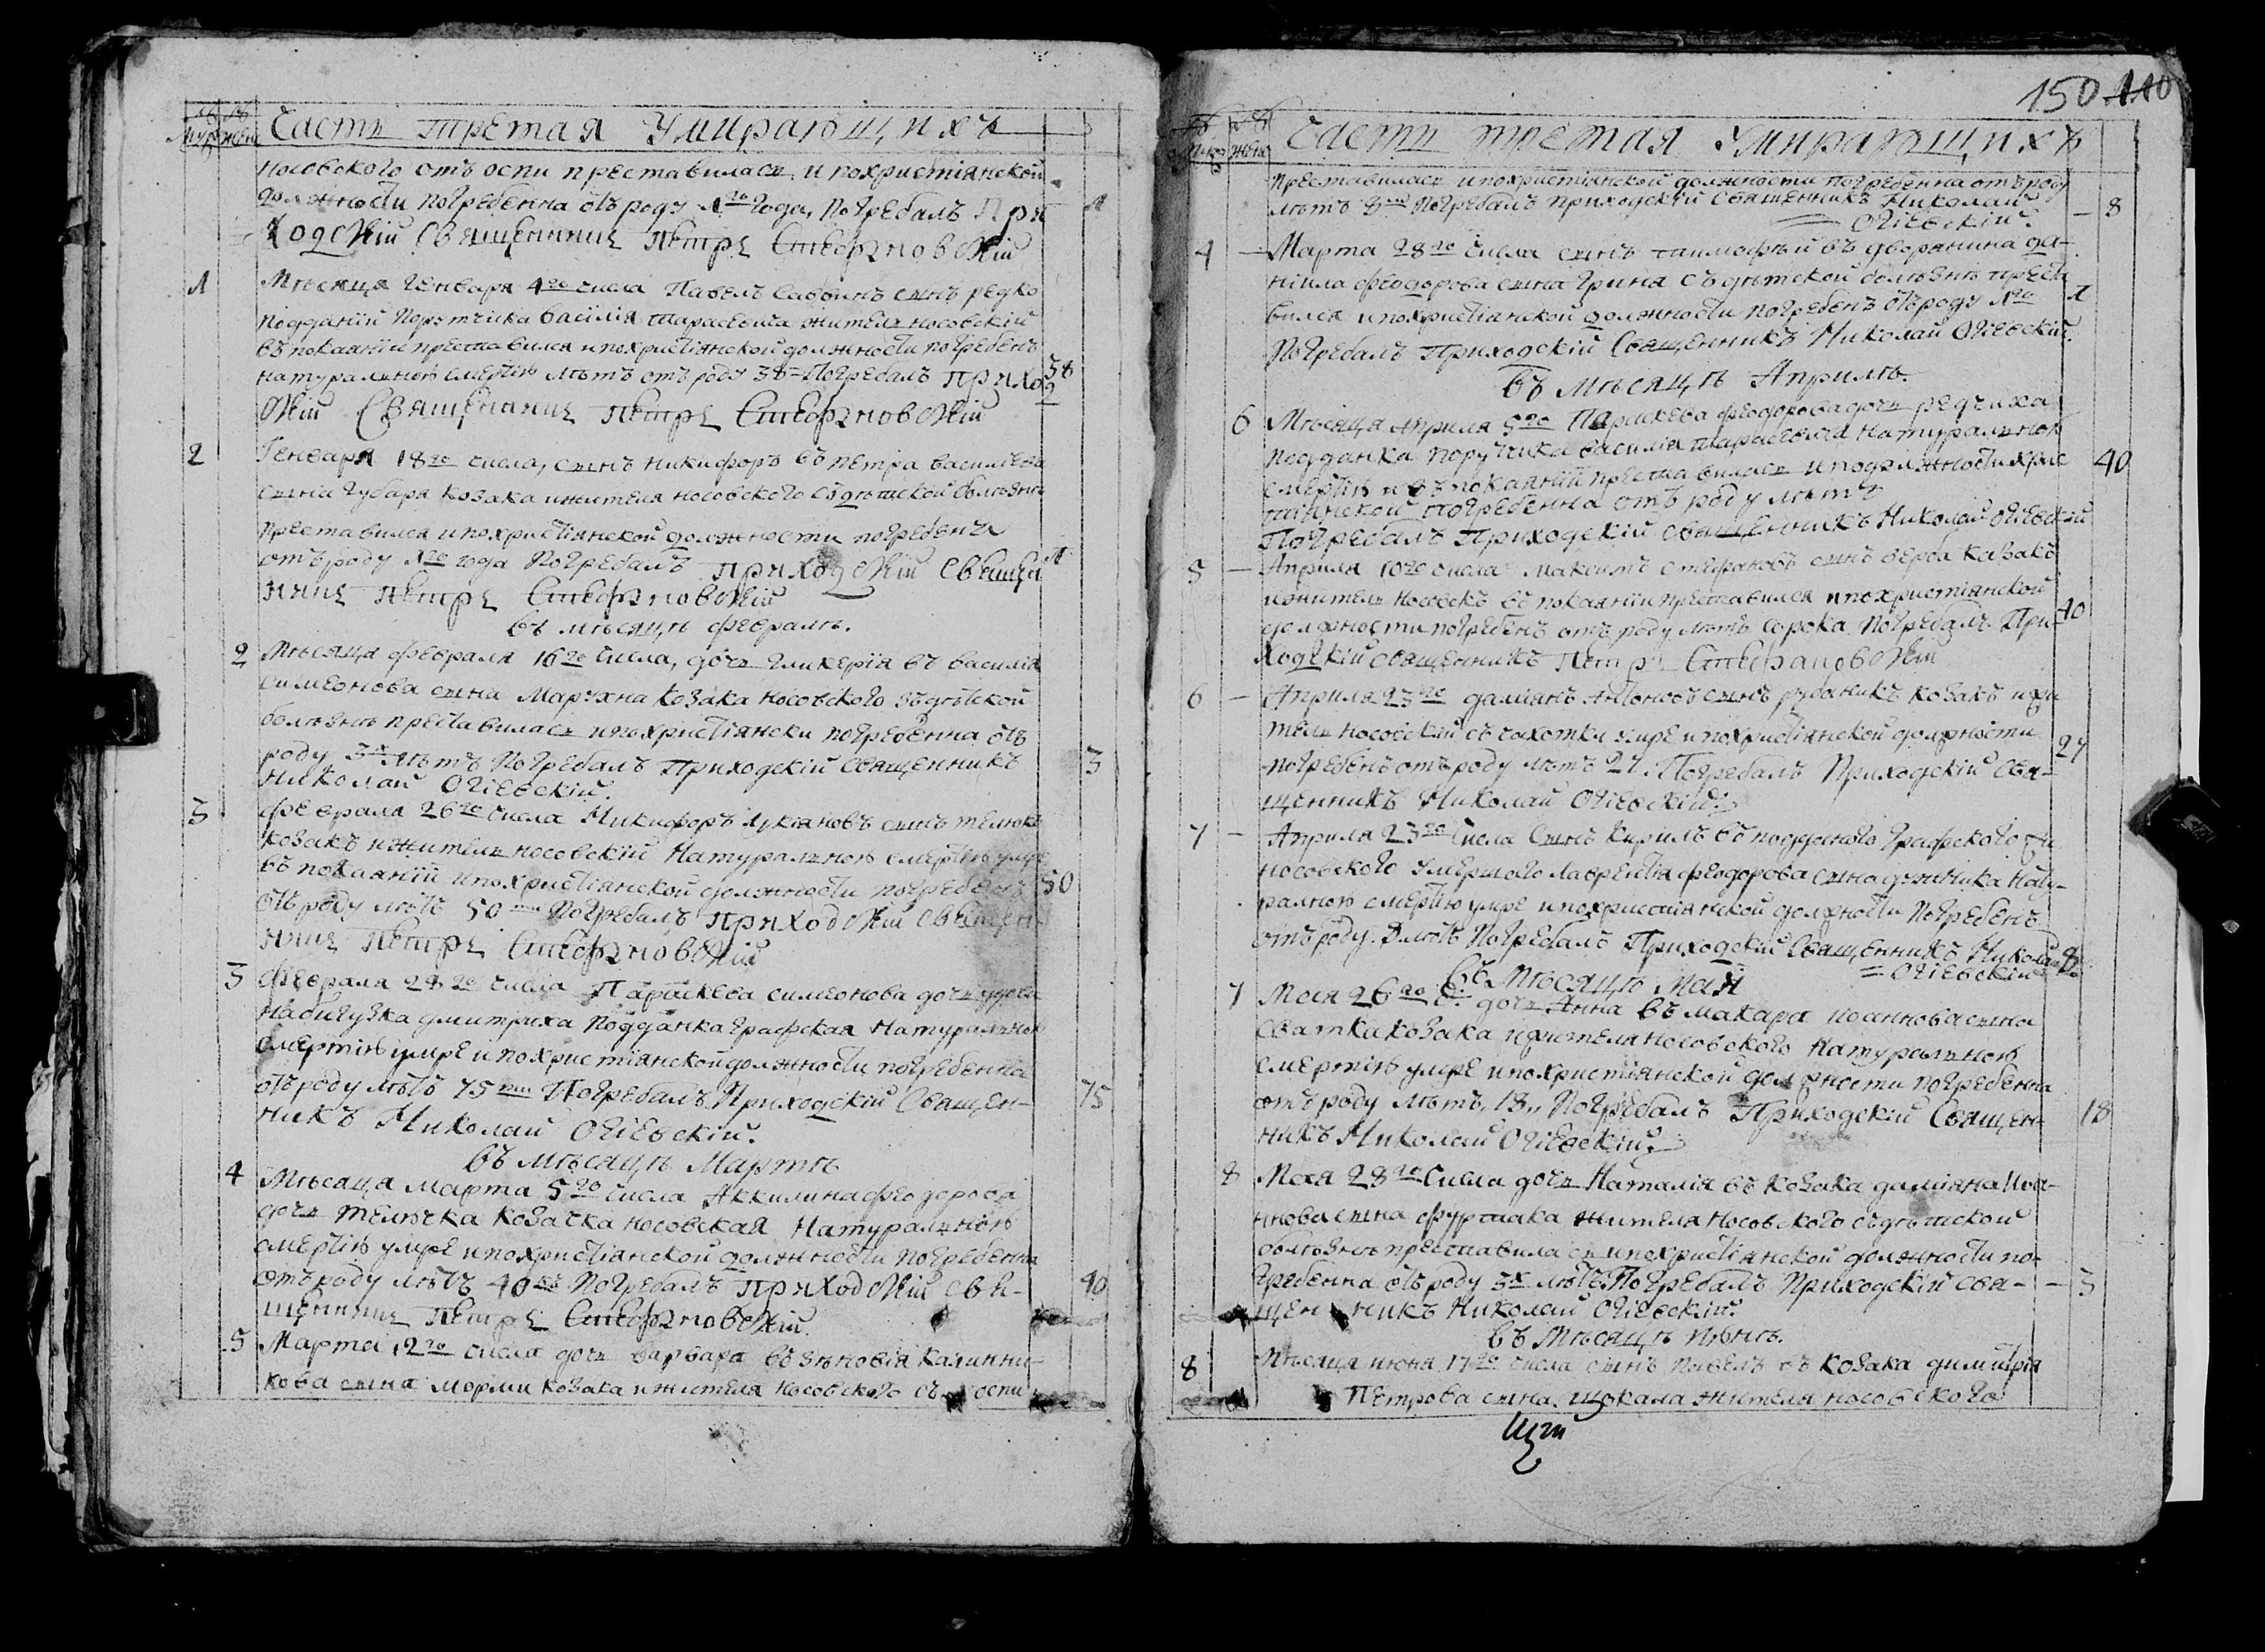 Часть третая Умирающихъ
муж жен
носовского отъ оспи преставилась и похристіянской
должности погребенна отъ роду 1го года, погребалъ При
ходскій Священникъ Петръ Стефановскій
1
1 Мѣсяца Генваря 4го числа Павелъ Саввинъ синъ редко
подданій Порутчика Василія Тарасевича жителъ носовскій
въ покаяніи преставился и похристіянской должности погребенъ
натуралною смертію лѣтъ отъ роду 38 Погребалъ прихо
38
скій Священникъ Петръ Стефановскій
2 Генваря 18го числа, синъ никифоръ въ петра василіева
сина губаря козака и жителя носовского съ дѣтской болѣзни
преставился и похристіянской должности погребенъ
отъ роду 1го года Погребалъ приходскій Священ
1
никъ Петръ Стефановскій
въ мѣсяцѣ февралѣ.
2 Мѣсяца февраля 16го числа, дочь гликерія въ василія
симеонова сина Марухна козака носовского зъ дѣтской
болѣзни преставилась и похристіянски погребенна отъ
роду 3х лѣтъ Погребалъ Приходскій Священникъ
3
Николай Огіевскій.
3 февраля 26го числа Никифоръ Лукяновъ синъ телюкъ
козакъ и жителъ носовскій Натуралною смертію умре
въ покаяніи и похристіянской должности погребенъ
50
отъ роду лѣтъ 50 Погребалъ приходскій Священ-
никъ Петръ Стефановскій
3 февраля 28го числа Параскева симеонова дочь удова
дмитриха Подданка графская Натуралною
смертію умре и похристіянской должности погребенна
отъ роду лѣтъ 75 Погребалъ Приходскій Священ-
75
никъ Николай Огіевскій.
въ мѣсяцѣ Мартѣ
4 Мѣсяца марта 5го числа Аккилина феодорова
дочь телючка козачка носовская Натуралною
смертію умре и похристіянской должности погребенна
отъ роду лѣтъ 40 Погребалъ приходскій Свя-
40
щенникъ Петръ Стефановскій.
5 Марта 12го числа дочь варвара въ зѣновія калинни-
кова сина морми козака и жителя носовского съ оспи
150 110
муж жен
Часть третая Умирающихъ
Преставилась и похристіянской должности погребенна отъ роду
лѣтъ 8 Погребалъ приходскій Священникъ Николай
- 8
Огіевскій.
4 - Марта 28го числа синъ тимофѣй въ дворянина да-
ніила феодорова сина Грина съ дѣтской болѣзнѣ преста
вился и похристіянской должности погребенъ отъ роду 1го
1
Погребалъ Приходскій Священникъ Николай Огіевскій.
въ мѣсяцѣ Априлѣ.
6 Мѣсяца априля 5го Параскева феодорова дочь редчиха
подданка поручика василія тарасевича натуралною
смертію и въ покаяніи преставилась и подолжности хрис
40
тіянской погребенна отъ роду лѣтъ
Погребалъ Приходскій священникъ Николай Огіевскій
5 - Априля 10го числа Максимъ стефановъ синъ верба казакъ
и жителъ носовск въ покаяніи преставился и похристіянской
должности погребенъ отъ роду лѣтъ сорока Погребалъ При-
40
ходскій священникъ Петр Стефановскій
6 - Априля 23го даміянъ Антоновъ синъ рубаникъ козакъ и жи
телъ носовскій съ чахотки умре и похристіянской должности
27
погребенъ отъ роду лѣтъ 27. Погребалъ Приходскій Свя-
щенникъ Николай Огіевскій.
7 - Априля 23го числа Синъ Кирилъ въ подданого графского жи
носовского Умершого лаврентія феодорова сина Нату-
ралною смертію умре и похристіянской должности погребенъ
отъ роду лѣтъ Погребалъ Приходскій Священникъ Николай
8
= Огіевскій
въ Мѣсяцѣ Маи
7 Мая 26го ч. дочь Анна въ макара иоаннова сина
сватка козака и жителя носовского натуралною
смертію умре и похристіянской должности погребенна
отъ роду лѣтъ, 18, Погребалъ Приходскій Священ-
18
никъ Николай Огіевскій
8 Мая 28го числа дочь Наталія въ козака даміяна Иоа-
ннова сина фурмака жителя носовского съ дѣтской
болѣзнѣ преставилась и похристіянской должности по-
гребенна отъ роду 3х лѣтъ Погребалъ Приходскій Свя-
- 3
щенникъ Николай Огіевскій.
въ Мѣсяцѣ июнѣ.
8 Мѣсяца июня 17го числа синъ павелъ въ козака димитрія
Петрова сина щокала жителя носовского